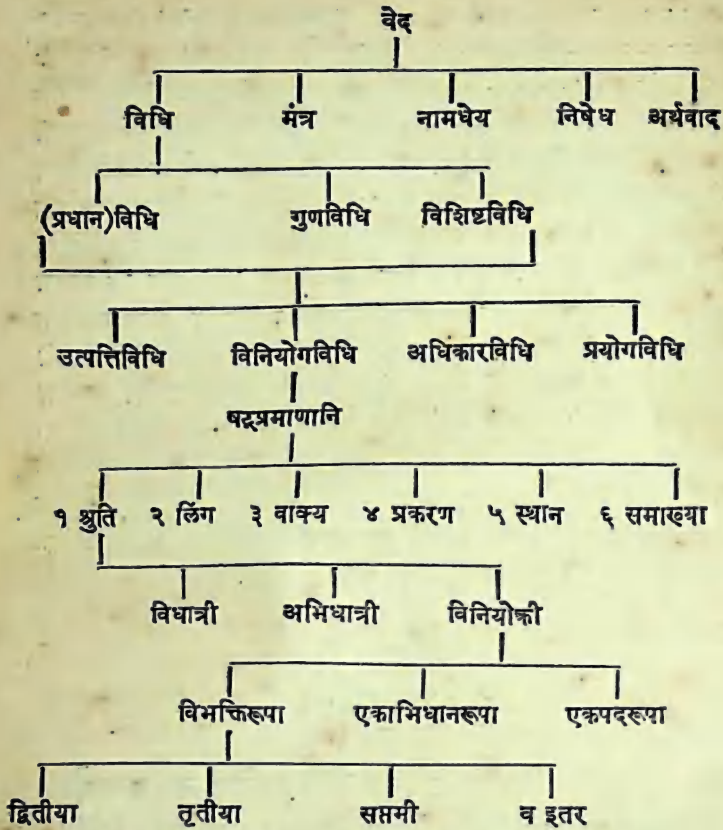 वेद
विधि मंत्र नामधेय निषेध अर्थवाद
(प्रधान)विधि गुणविधि विशिष्टविधि
उत्पत्तिविधि विनियोगविधि अधिकारविधि प्रयोगविधि
षट्प्रमाणानि
१ श्रुति २ लिंग ३ वाक्य ४ प्रकरण ५ स्थान ६ समाख्या
विधात्री अभिधात्री विनियोक्री
विभक्तिरूपा एकाभिधानरूपा एकपदरूपा
द्वितीया तृतीया सप्तमी व इतर